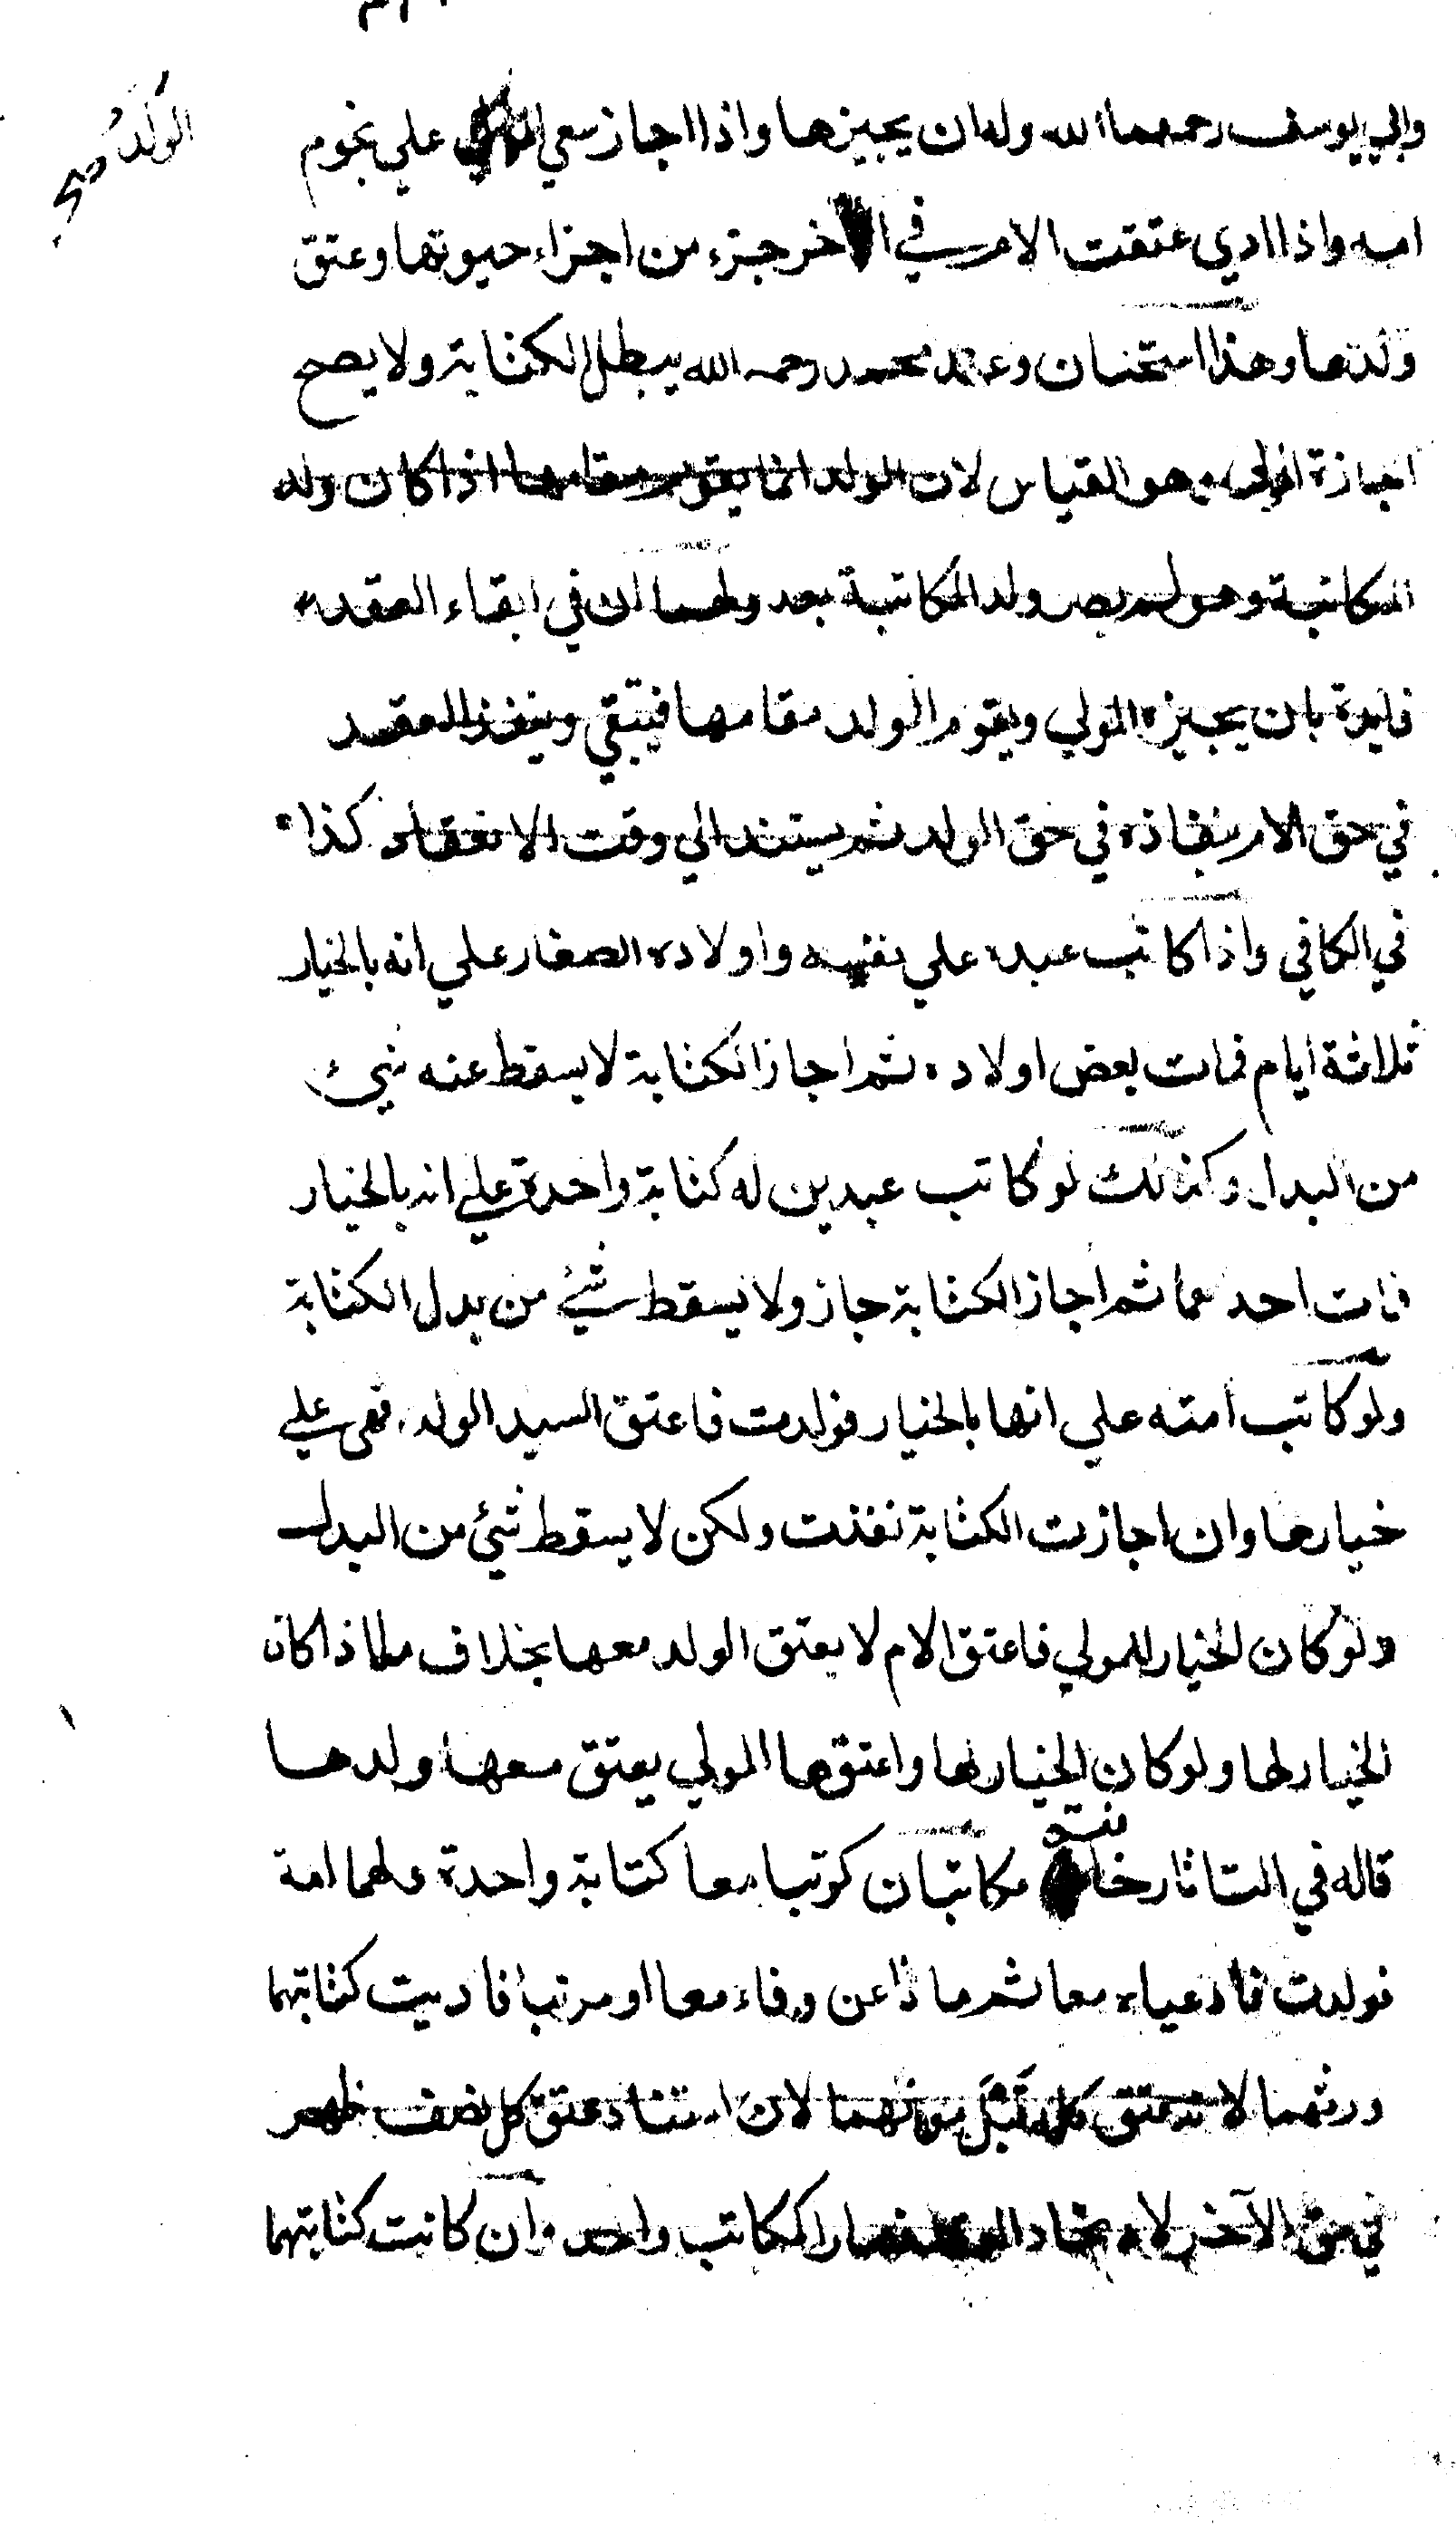 وابي يوسف رحمهما الله وله ان يجيزها واذا اجاز سعي علي نجوم
الولد صح
امه واذا ادي عتقت الام في اخر جزء من اجزاء حيوتها وعتق
ولدها وهذا استحسان وعند محمد رحمه الله يبطل الكتابة ولا يصح
اجازة المولي وهو القياس لان الولد انما يقوم مقامها اذا كان ولد
المكاتبة وهو لم يصر ولد المكاتبة بعد ولهما ان في ابقاء العقد
فايدة بان يجيزه المولي ويقوم الولد مقامها فيبقي وينفذ العقد
في حق الام بنفاذه في حق الولد ثم يستند الي وقت الانعقاد كذا
في الكافي واذا كاتب عبده علي نفسه واولاده الصغار علي انه بالخيار
ثلاثة ايام فمات بعض اولاده ثم اجاز الكتابة لا يسقط عنه شيء
من البدل وكذلك لو كاتب عبدين له كتابة واحدة علي انه بالخيار
فمات احدهما ثم اجاز الكتابة جاز ولا يسقط شيء من بدل الكتابة
ولو كاتب امته علي انها بالخيار فولدت فاعتق السيد الولد فهي علي
خيارها وان اجازت الكتابة نفذت ولكن لا يسقط شيء من البدل
ولو كان الخيار للمولي فاعتق الام لا يعتق الولد معها بخلاف ما اذا كان
الخيار لها ولو كان الخيار لها واعتقها المولي يعتق معها ولدها
قاله في التاتارخانية مكاتبان كوتبا معا كتابة واحدة ولهما امة
فولدت فادعياه معا ثم ماتا عن وفاء معا او مرتبا فاديت كتابتهما
ورثهما لا قبل موتهما لان استناد عتق كل نصف ظهر
في حق الآخر لا المكاتب واحد وان كانت كتابتهما